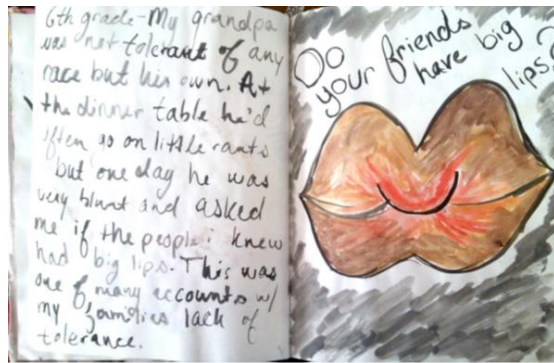 6th grade-My grandpa
was not tolerant of any
race but his own. At
the dinner table he'd
often go on little rants
but one day he was
very blunt and asked
me if the people i knew
had big lips. This was
one of many accounts w/
my families lack of
tolerance.
Do
your friends
have big
lips?